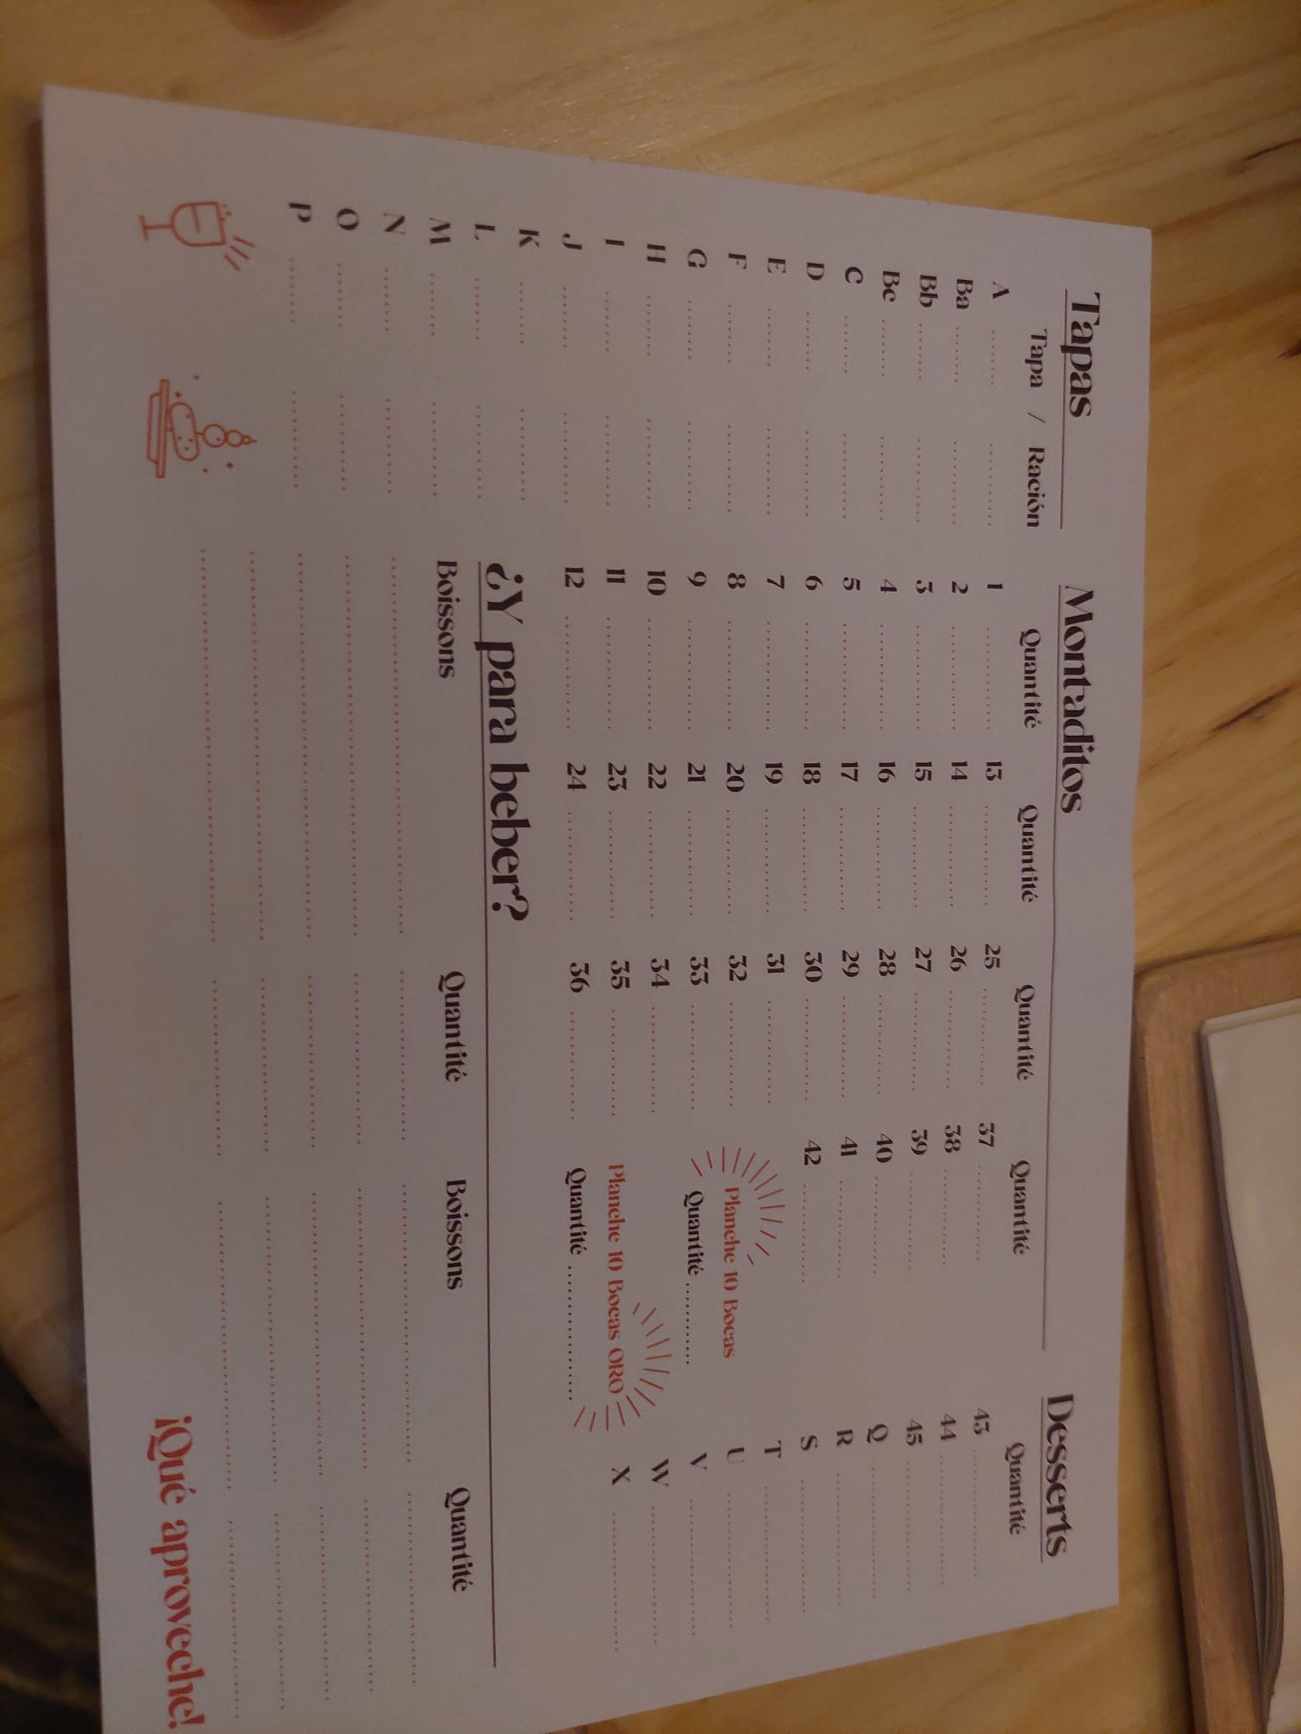 Tapas
Tapa / Ración
A ........ ..........
Ba ........ ..........
Bb ........ ..........
Bc ........ ..........
C ........ ..........
D ........ ..........
E ........ ..........
F ........ ..........
G ........ ..........
H ........ ..........
I ........ ..........
J ........ ..........
K ........ ..........
L ........ ..........
M ........ ..........
N ........ ..........
O ........ ..........
P ........ ..........
Montaditos
Quantité Quantité Quantité Quantité
1 ............ 13 ............ 25 ............ 37 ............
2 ............ 14 ............ 26 ............ 38 ............
3 ............ 15 ............ 27 ............ 39 ............
4 ............ 16 ............ 28 ............ 40 ............
5 ............ 17 ............ 29 ............ 41 ............
6 ............ 18 ............ 30 ............ 42 ............
7 ............ 19 ............ 31 ............
8 ............ 20 ............ 32 ............
9 ............ 21 ............ 33 ............
10 ............ 22 ............ 34 ............
11 ............ 23 ............ 35 ............
12 ............ 24 ............ 36 ............
Planche 10 Bocas
Quantité ............
Planche 10 Bocas ORO
Quantité ..................
Desserts
Quantité
43 ..............
44 ..............
45 ..............
Q ..............
R ..............
S ..............
T ..............
U ..............
V ..............
W ..............
X ..............
¿Y para beber?
Boissons Quantité Boissons Quantité
¡Qué aproveche!